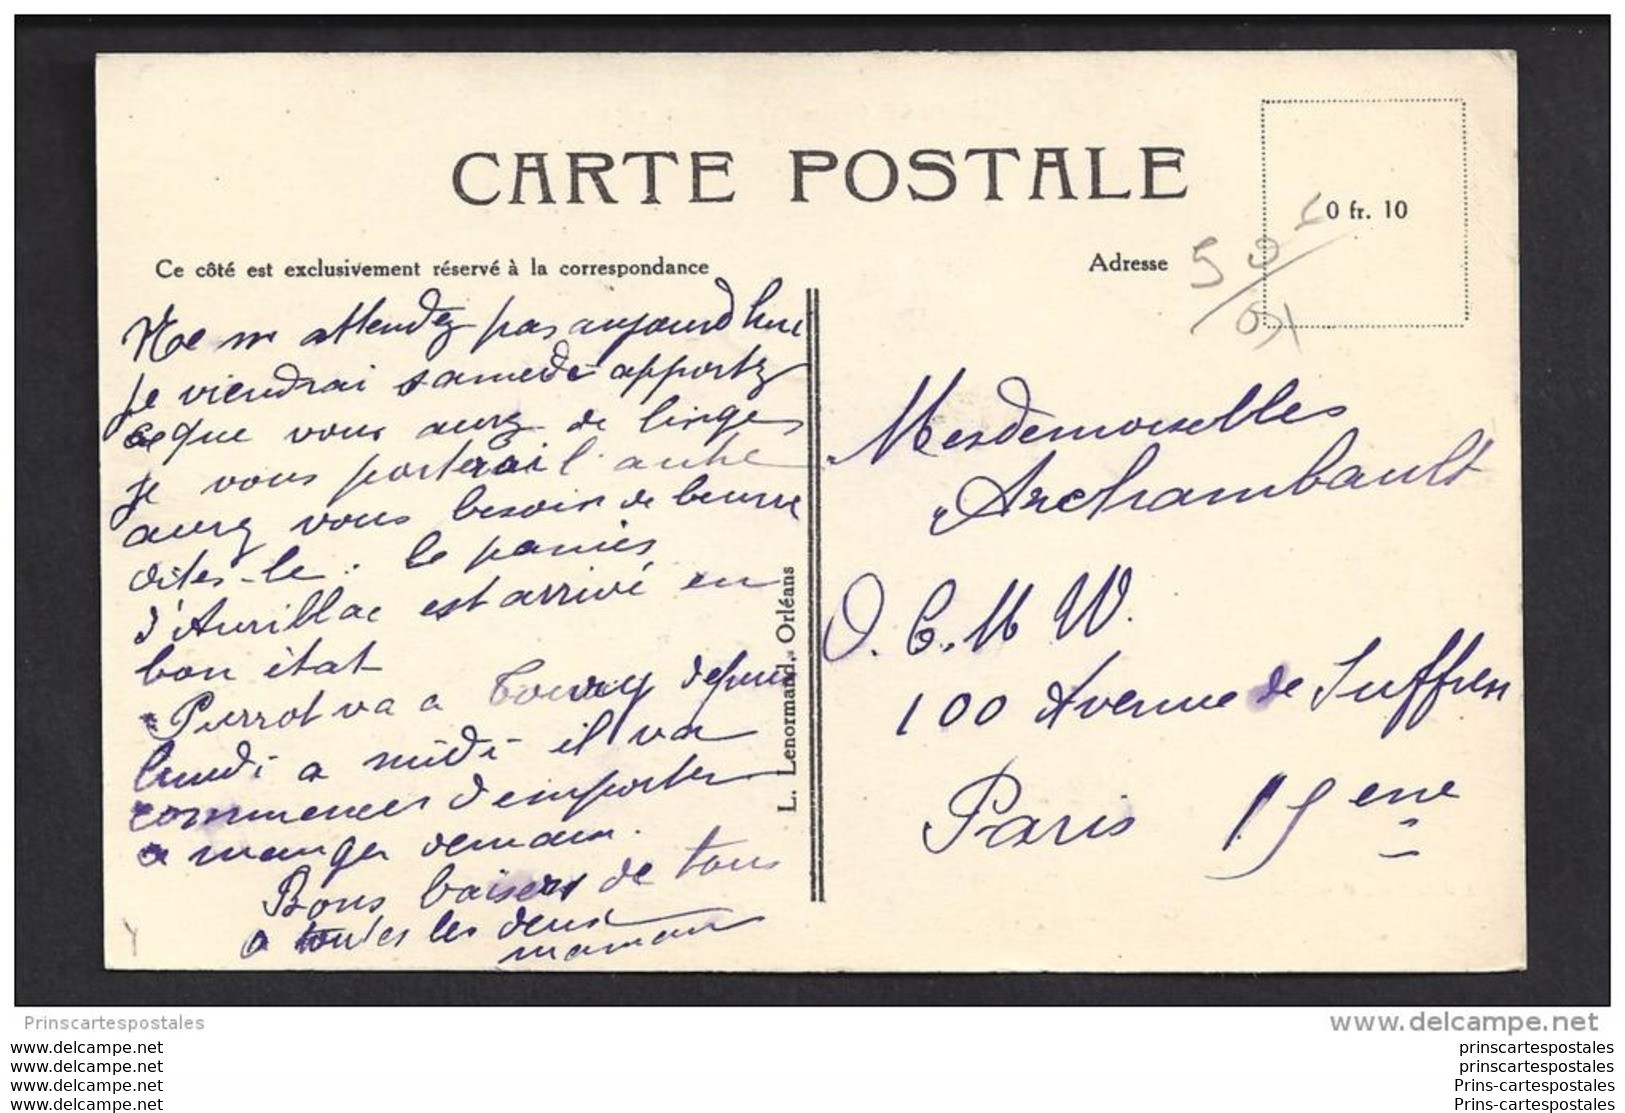 CARTE POSTALE
0 fr. 10
Ce côté est exclusivement réservé à la correspondance
Adresse
Ne m attendez pas aujourd hui
je viendrai samedi apportez
ce que vous aurez de linges
je vous porterai l'autre
aurez vous besoin de beurre
dites-le. le panier
d'Aurillac est arrivé en
bon état
Pierrot va a Toury depuis
lundi a midi il va
commencer d emporter
a manger demain.
Bons baisers de tous
a toutes les deux
maman
L. Lenormand, Orléans
Mesdemoiselles
Archambault
O. C. M W.
100 Avenue de Suffren
Paris 15 eme
Prinscartespostales
www.delcampe.net
www.delcampe.net
www.delcampe.net
www.delcampe.net
www.delcampe.net
prinscartespostales
prinscartespostales
Prins-cartespostales
Prins-cartespostales